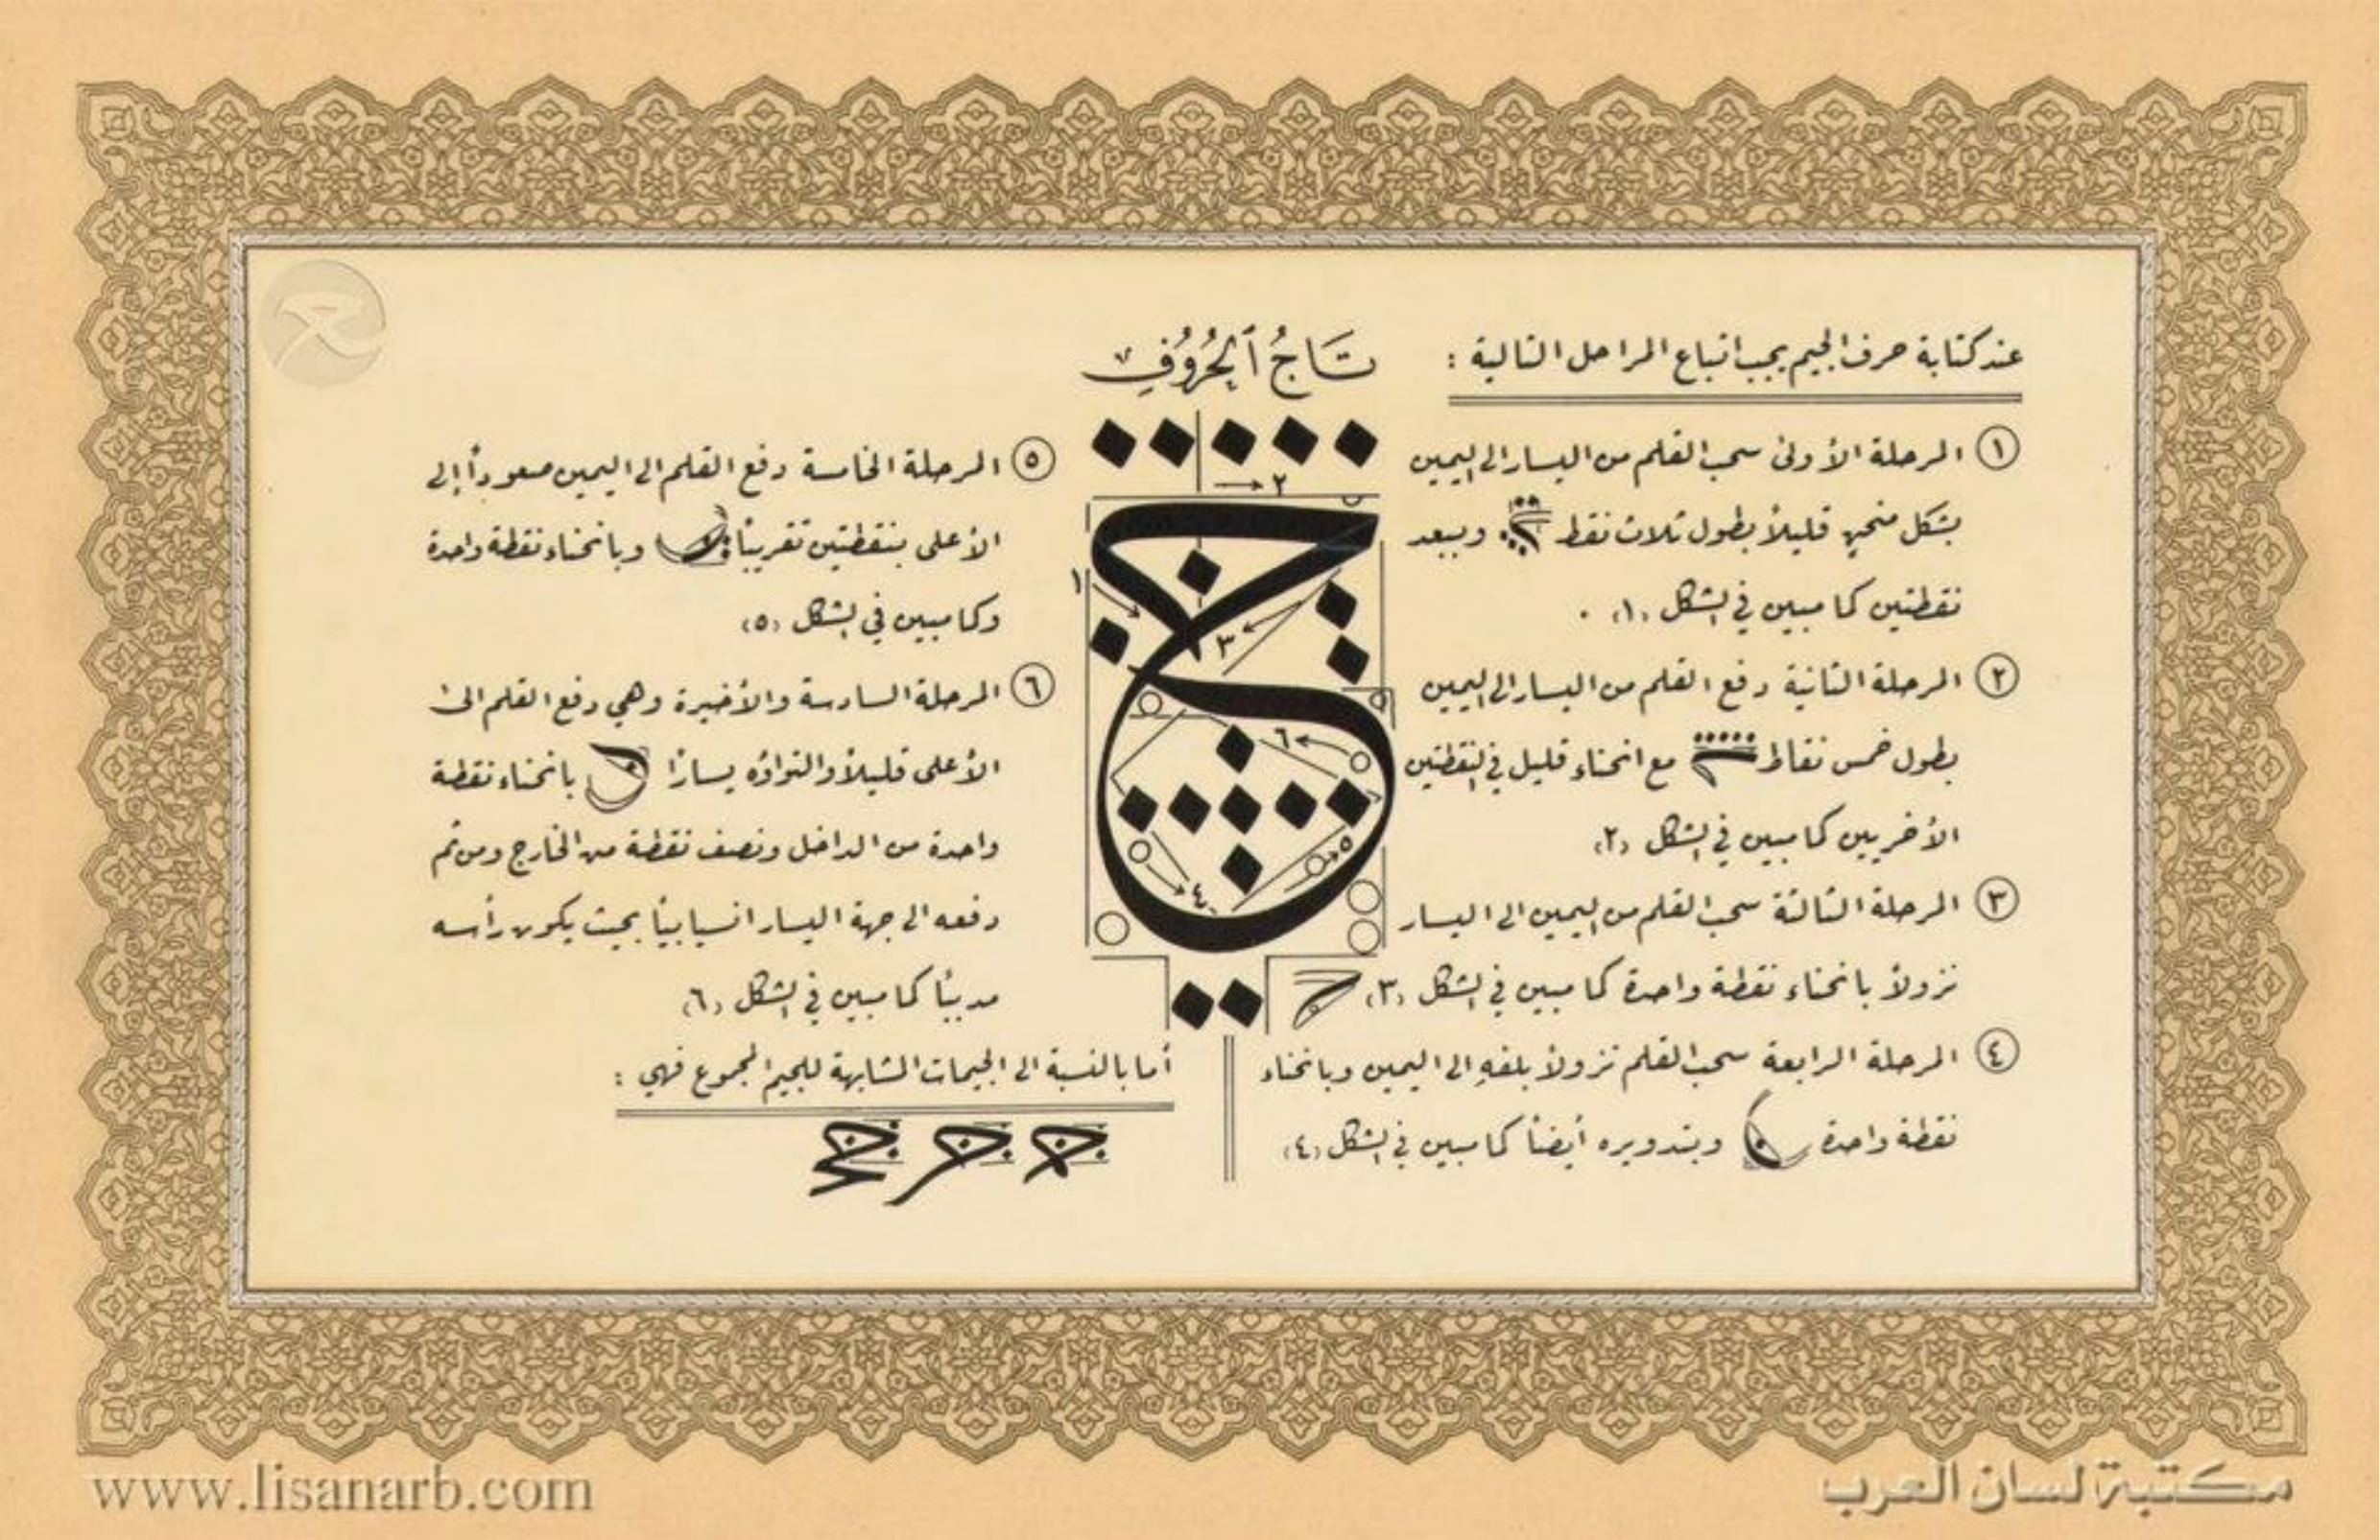 عند كتابة حرف الجيم يجب اتباع المراحل التالية :
١ المرحلة الأولى سحب القلم من اليسار الى اليمين
بشكل منحنٍ قليلاً بطول ثلاث نقط وببعد
نقطتين كما مبين في الشكل (١) .
٢ المرحلة الثانية دفع القلم من اليسار الى اليمين
بطول خمس نقاط مع انحناء قليل في النقطتين
الأخريين كما مبين في الشكل (٢)
٣ المرحلة الثالثة سحب القلم من اليمين الى اليسار
نزولاً بانحناء نقطة واحدة كما مبين في الشكل (٣)
٤ المرحلة الرابعة سحب القلم نزولاً بلفهِ الى اليمين وبانحناء
نقطة واحدة وبتدويره أيضاً كما مبين في الشكل (٤)
تَاجُ ٱلحُرُوُفِ
٢
١
٣
٦
٥
٤
٥ المرحلة الخامسة دفع القلم الى اليمين صعوداً إلى
الأعلى بنقطتين تقريباً وبانحناء نقطة واحدة
وكما مبين في الشكل (٥)
٦ المرحلة السادسة والأخيرة وهي دفع القلم الى
الأعلى قليلاً والتواؤه يساراً بانحناء نقطة
واحدة من الداخل ونصف نقطة من الخارج ومن ثم
دفعه الى جهة اليسار انسيابياً بحيث يكون رأسه
مدبباً كما مبين في الشكل (٦)
أما بالنسبة الى الجيمات المشابهة للجيم المجموع فهي :
www.lisanarb.com
مكتبة لسان العرب